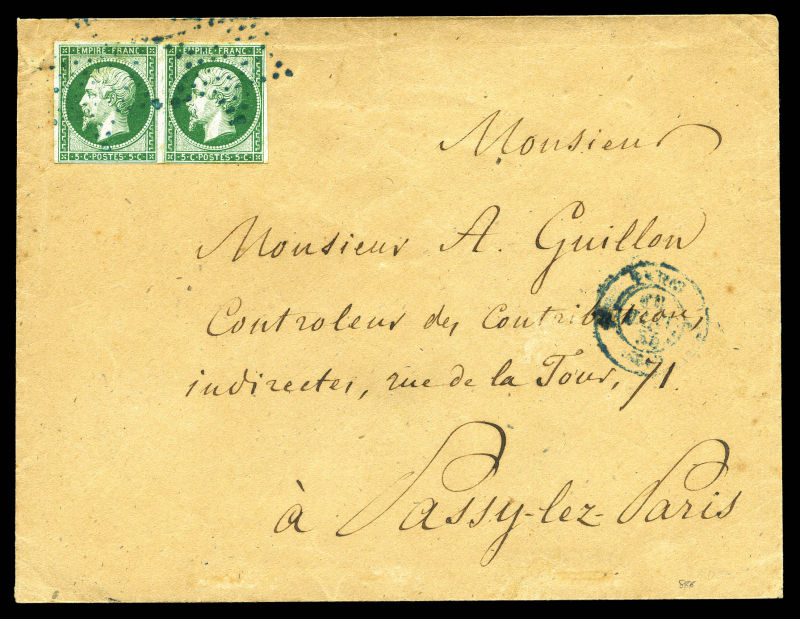 EMPIRE FRANC · EMPIRE FRANC
5·C·POSTES·5·C · 5·C·POSTES·5·C
Monsieur
Monsieur A. Guillon
Controleur des Contributions
indirectes, rue de la Tour, 71.
à Passy-lez-Paris
PARIS